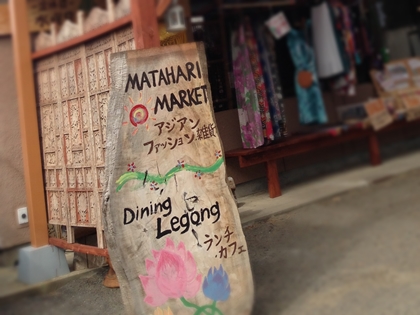 MATAHARI
MARKET
アジアン
ファッション雑貨
Dining
Legong
ランチ
カフェ